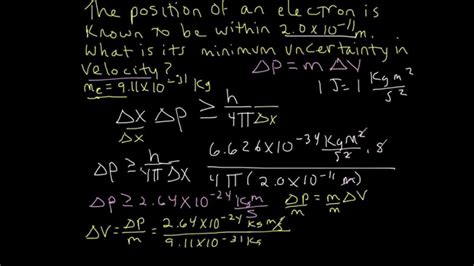 The position of an electron is
known to be within 2.0×10⁻¹¹ m.
What is its minimum uncertainty in
velocity? Δp = m ΔV
mₑ = 9.11×10⁻³¹ Kg 1 J = 1 Kg m²/s²
Δx Δp ≥ h/4π Δx
Δx
Δp ≥ h/4π Δx 6.626×10⁻³⁴ Kg m²/s² · s / 4π (2.0×10⁻¹¹ m)
Δp ≥ 2.64×10⁻²⁴ Kg m/s Δp/m = m/m ΔV
ΔV = Δp/m = 2.64×10⁻²⁴ Kg m/s / 9.11×10⁻³¹ Kg